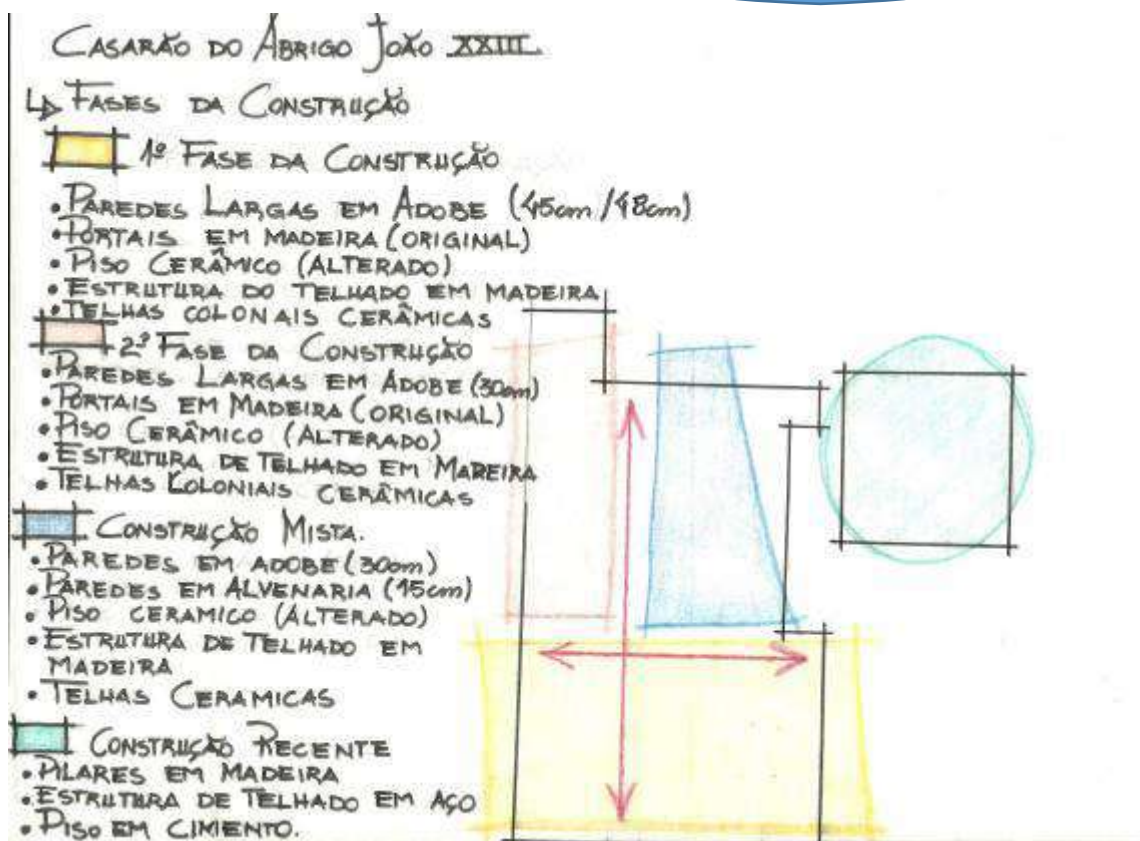 CASARÃO DO ABRIGO JOÃO XXIII
FASES DA CONSTRUÇÃO
1ª FASE DA CONSTRUÇÃO
• PAREDES LARGAS EM ADOBE (45cm/48cm)
• PORTAIS EM MADEIRA (ORIGINAL)
• PISO CERÂMICO (ALTERADO)
• ESTRUTURA DO TELHADO EM MADEIRA
• TELHAS COLONAIS CERÂMICAS
2ª FASE DA CONSTRUÇÃO
• PAREDES LARGAS EM ADOBE (30cm)
• PORTAIS EM MADEIRA (ORIGINAL)
• PISO CERÂMICO (ALTERADO)
• ESTRUTURA DE TELHADO EM MADEIRA
• TELHAS COLONIAIS CERÂMICAS
CONSTRUÇÃO MISTA.
• PAREDES EM ADOBE (30cm)
• PAREDES EM ALVENARIA (15cm)
• PISO CERAMICO (ALTERADO)
• ESTRUTURA DE TELHADO EM
MADEIRA
• TELHAS CERAMICAS
CONSTRUÇÃO RECENTE
• PILARES EM MADEIRA
• ESTRUTURA DE TELHADO EM AÇO
• PISO EM CIMENTO.